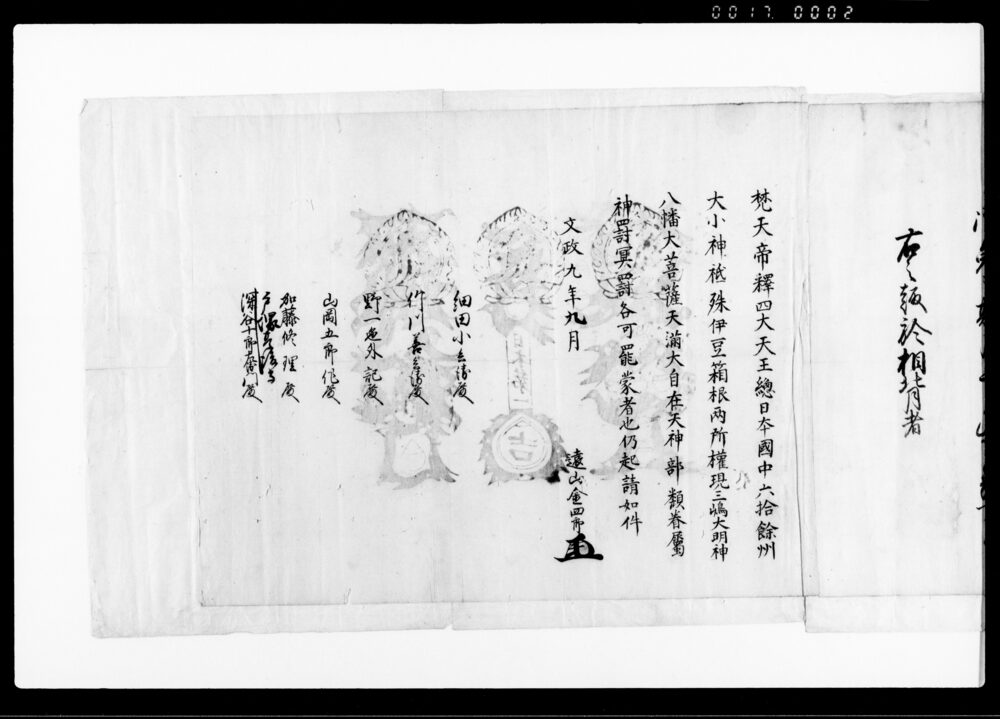 0017 0002
右之趣於相背者
梵天帝釋四大天王總日本國中六拾餘州
大小神祇殊伊豆箱根兩所權現三嶋大明神
八幡大菩薩天滿大自在天神部類眷屬
神罸冥罸各可罷蒙者也仍起請如件
文政九年九月
遠山金四郎
細田小兵衛殿
竹川善兵衛殿
野一色外記殿
山岡五郎作殿
加藤修理殿
戸塚
深谷十郎左衛門殿